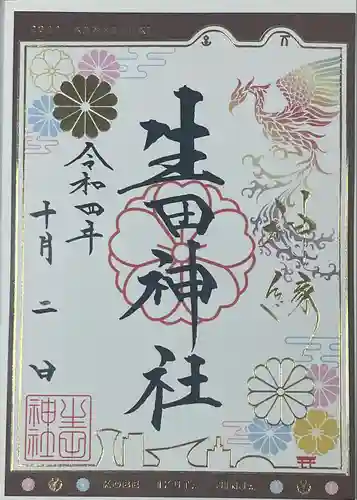 生田神社
令和四年
十月二日
生田神社
KOBE IKUTA JINJA